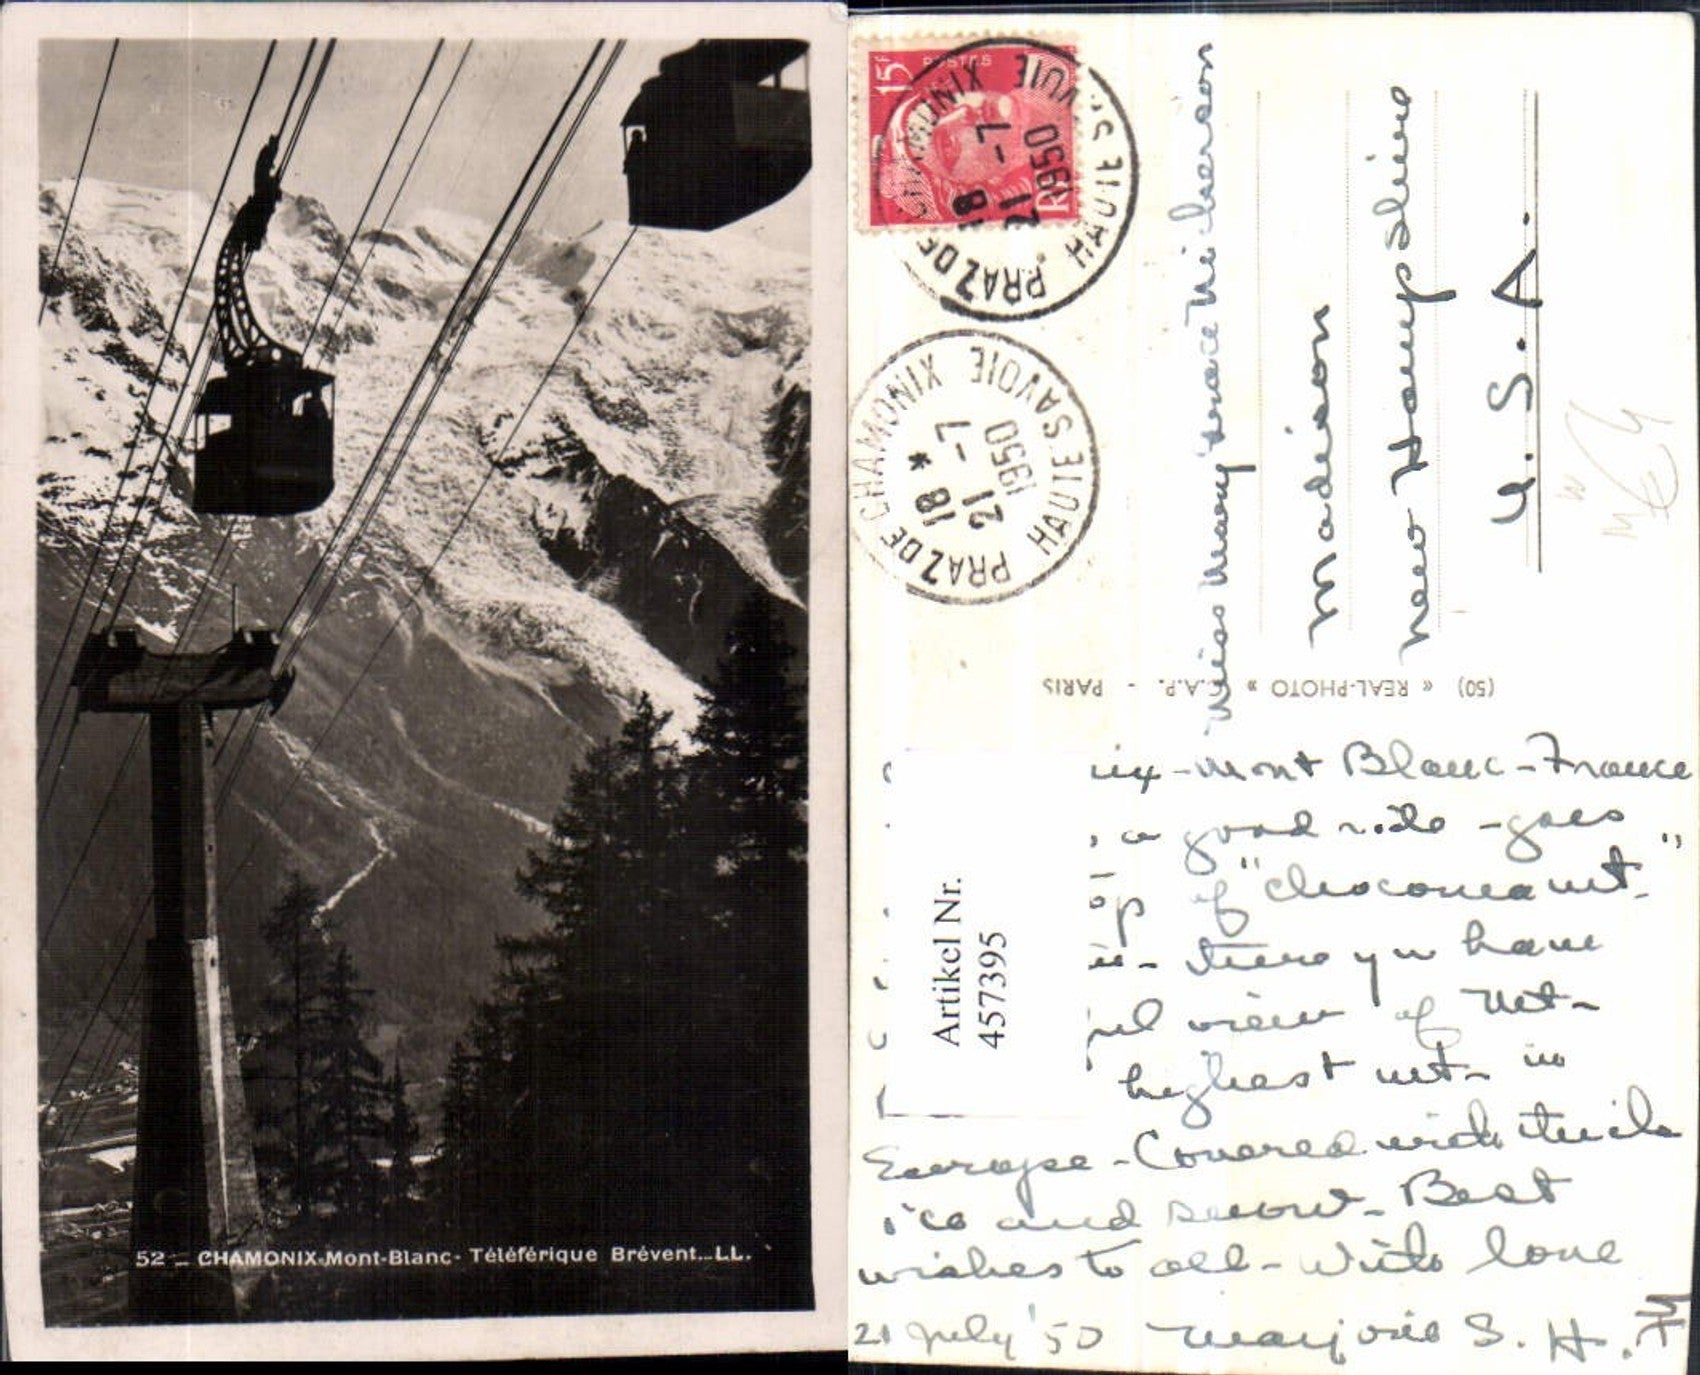 52 _ CHAMONIX-Mont-Blanc- Téléférique Brévent_LL.
15F POSTES RF
PRAZ DE CHAMONIX
18
21 -7
1950
HAUTE SAVOIE
PRAZ DE CHAMONIX
18 *
21 -7
1950
HAUTE SAVOIE
Miss Mary Grace Nicherson
Madison
New Hampshire
U.S.A.
(50) « REAL-PHOTO » C.A.P. - PARIS
Artikel Nr.
457395
ix-Mont Blanc-France
a good ride - goes
op of "
there you have
view of Mt-
highest mt- in
Europe - Covered with thick
ice and snow - Best
wishes to all - With love
21 July '50 Marjorie S. H.